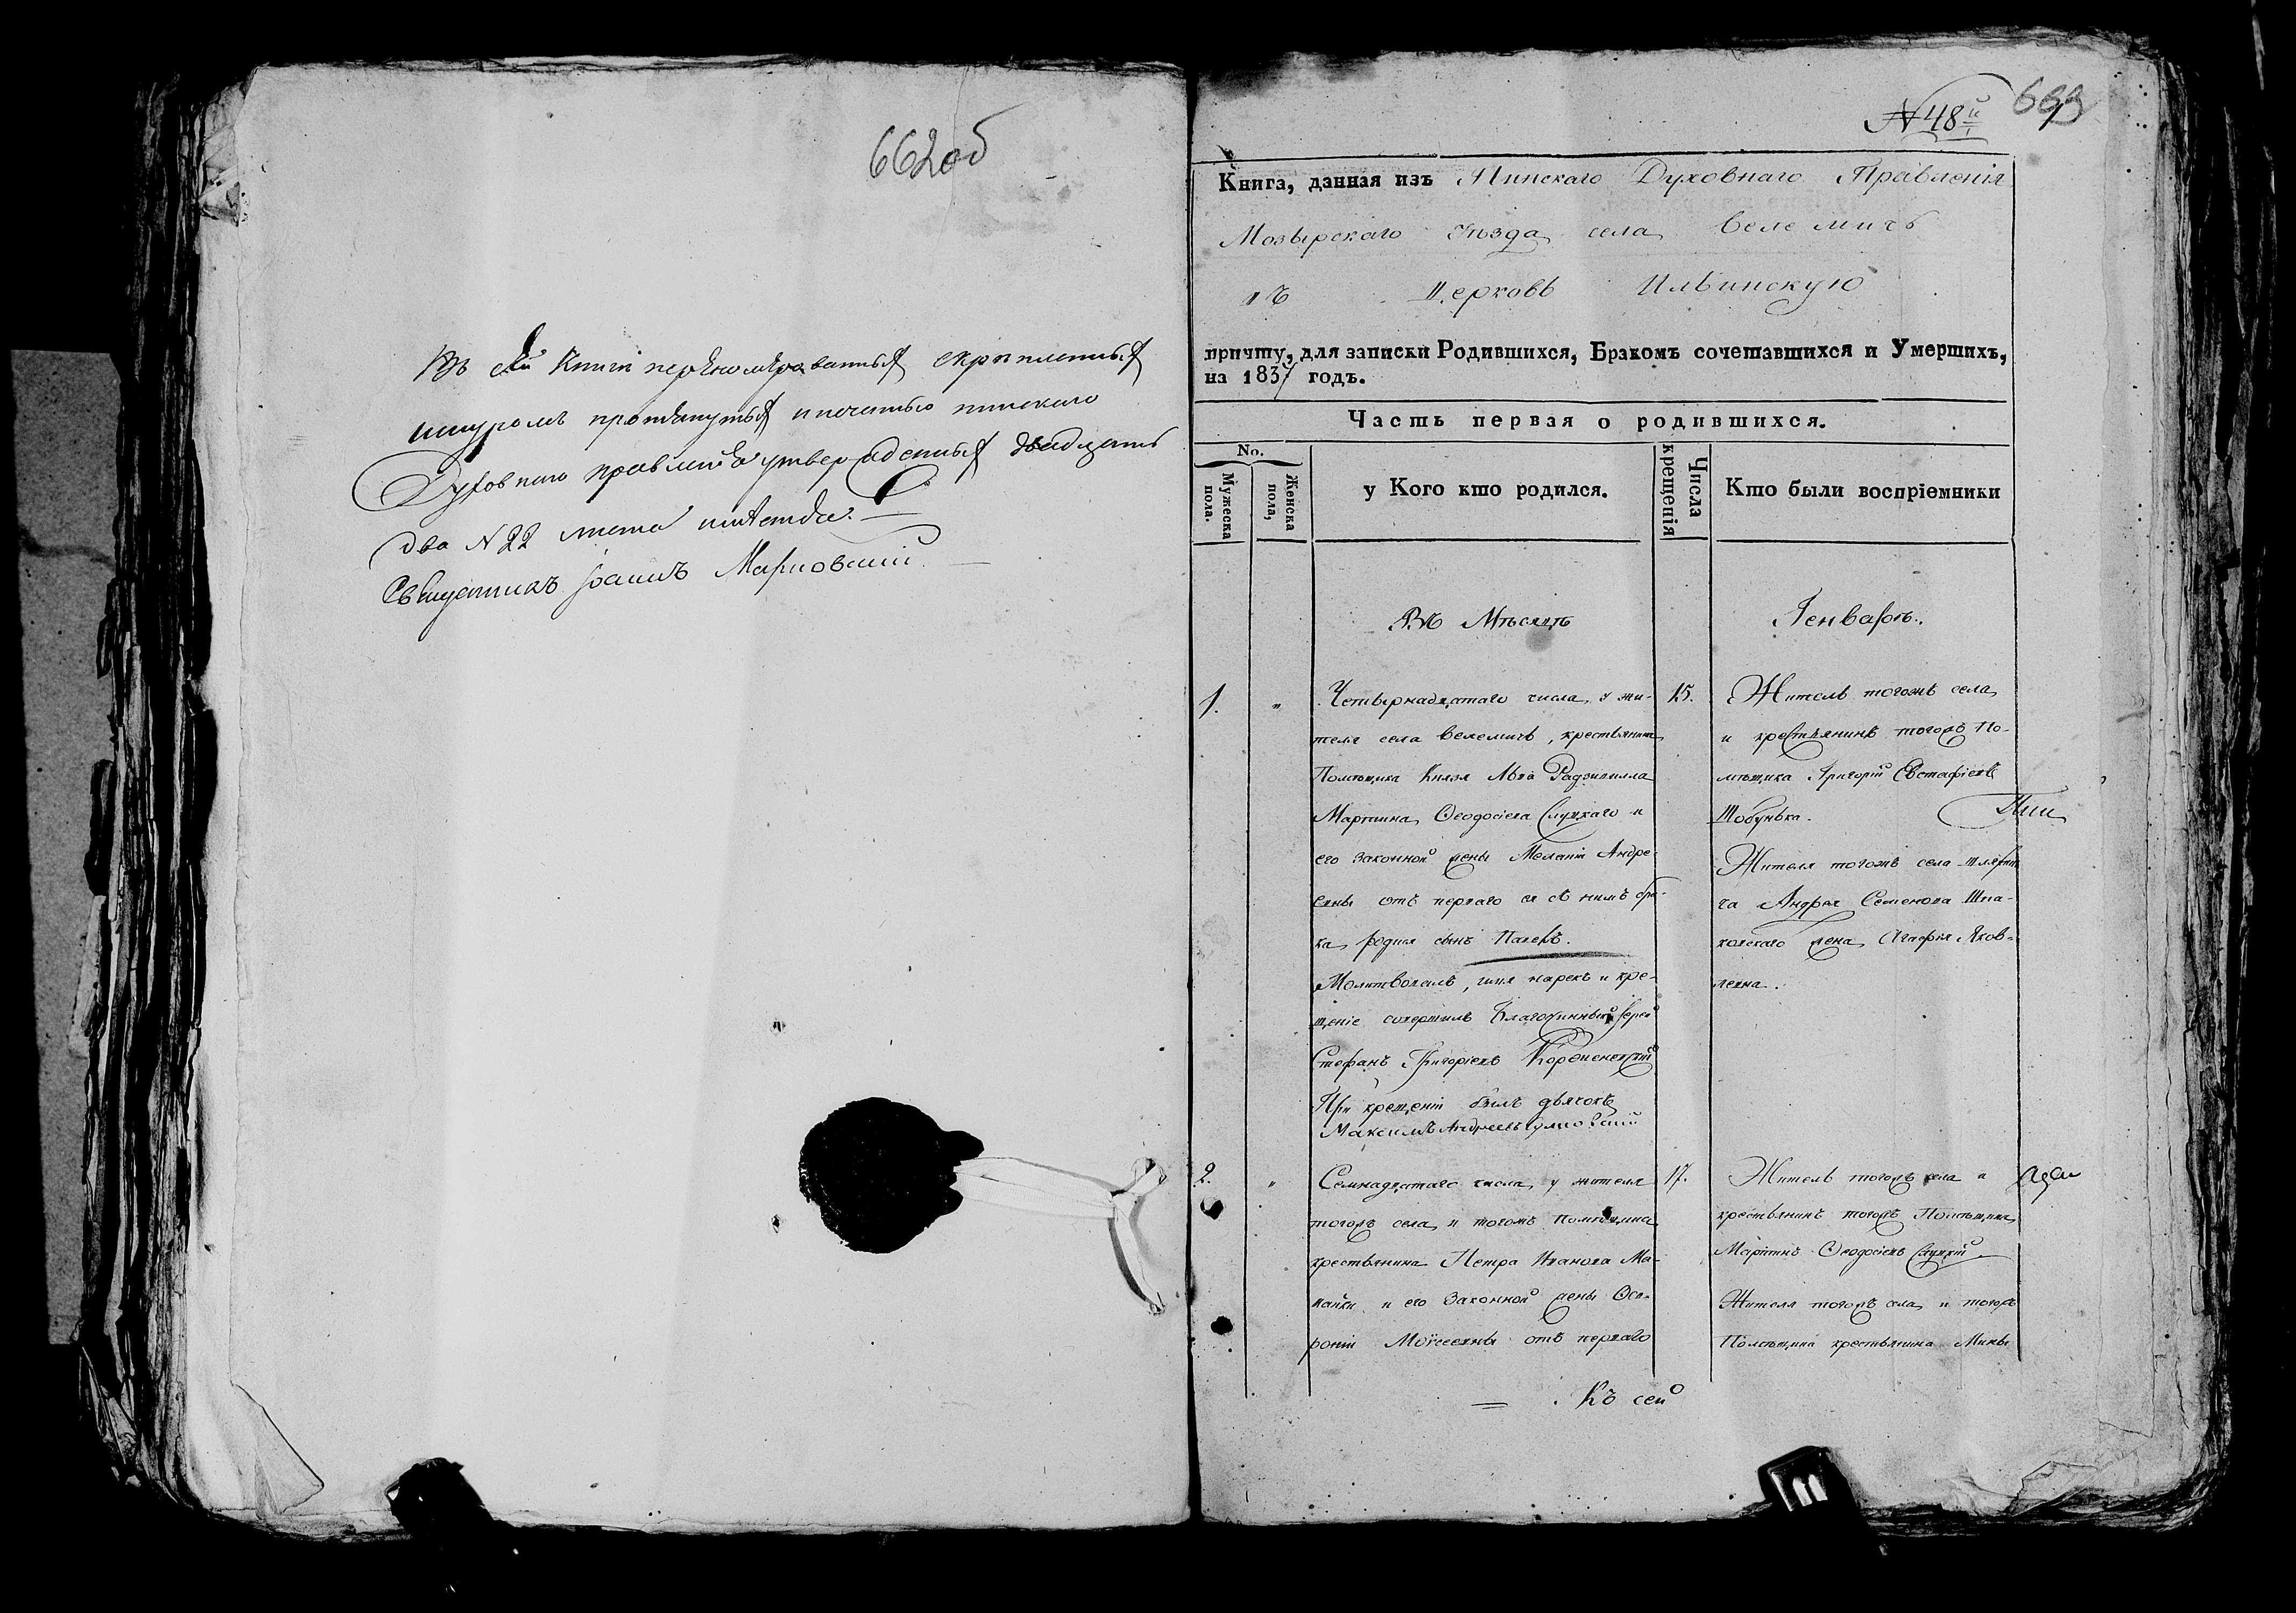 662об
Въ сей Книгѣ перенумерованныхъ скрѣпленныхъ
шнуромъ протянутыхъ и печатью пинскаго
Духовнаго правленія утвержденныхъ двадцать
два N 22 листа
Священникъ Іоаннъ
N 48й 663
Книга, данная изъ Пинскаго Духовнаго Правленія
Мозырскаго уѣзда села Велемичъ
въ Церковь Ильинскую
причту, для записки Родившихся, Бракомъ сочетавшихся и Умершихъ,
на 1837 годъ.
Часть первая о родившихся.
No.
Мужеска пола.
Женска пола,
у Кого кто родился.
Числа крещенія
Кто были воспріемники
Въ Мѣсяцѣ
Генварѣ.
1.
"
Четырнадцатаго числа, у жи-
теля села Велемичь, крестьянина
Помѣщика Князя Льва Радзивилла
Мартина Ѳеодосіева Слуцкаго и
его законной жены Меланіи Андре-
евны отъ перваго ея съ нимъ бра-
ка, родился сынъ Павелъ.
Молитвовалъ, имя нарекъ и кре-
щеніе совершилъ Благочинный Іерей
Стефанъ Григоріевъ
При крещеніи былъ дьячокъ
Максимъ Андреевъ
15.
Житель тогожъ села
и крестьянинъ тогожъ По-
мѣщика Григорій Евстафіевъ
Шобунька.
Жителя тогожъ села шляхти
ча Андрея Семенова Шпа-
ковскаго жена, Агафія Яков-
левна.
2.
"
Семнадцатаго числа, у жителя
тогожъ села, и тогожъ помѣщика
крестьянина Петра Иванова Ма-
и его законной жены Ѳев-
роніи Моѵсеевны отъ перваго
17.
Житель тогожъ села и
крестьянинъ тогожъ Помѣщика
Мартинъ Ѳеодосіевъ Слуцкій.
Жителя тогожъ села, и тогожъ
Помѣщика крестьянина Мины
Къ сей